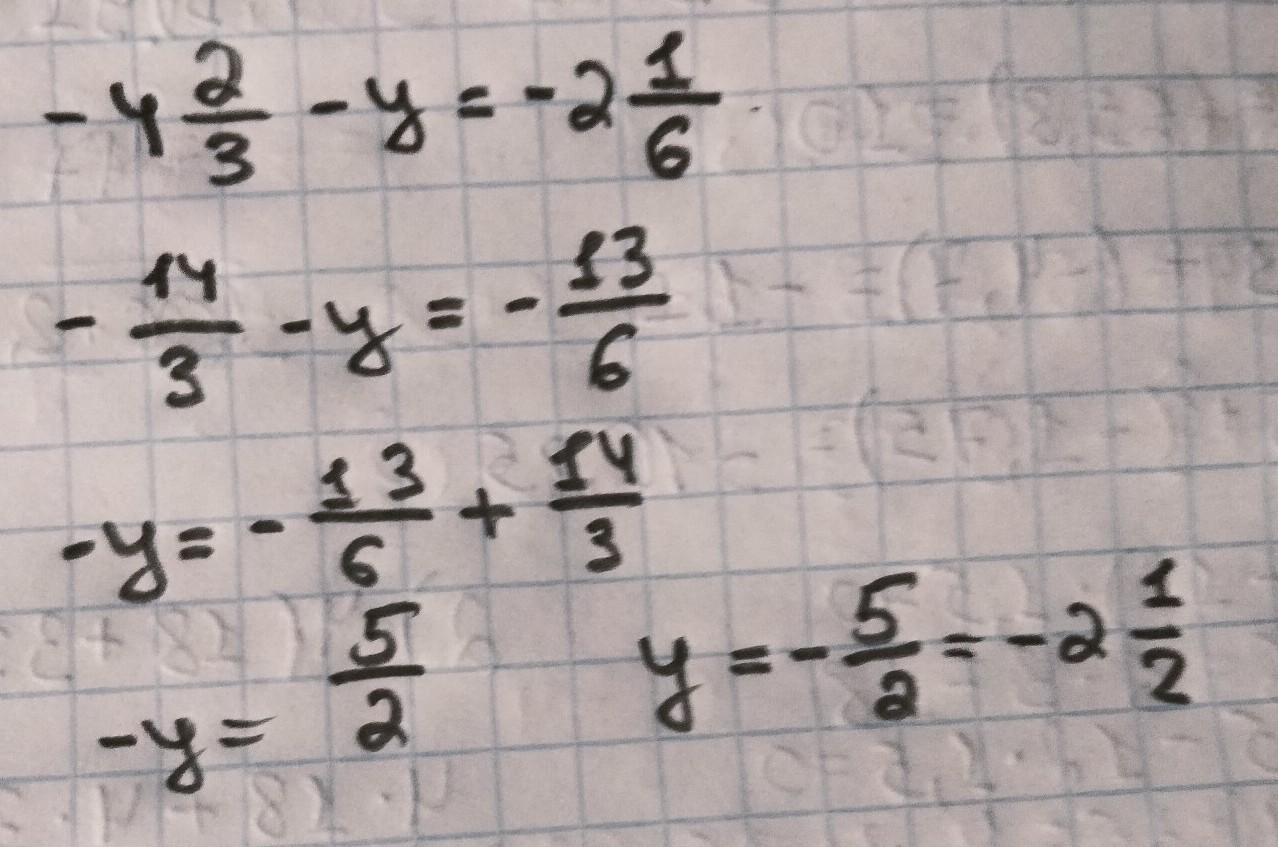 -4 2/3 - y = -2 1/6
- 14/3 - y = - 13/6
-y = - 13/6 + 14/3
-y = 5/2 y = - 5/2 = -2 1/2